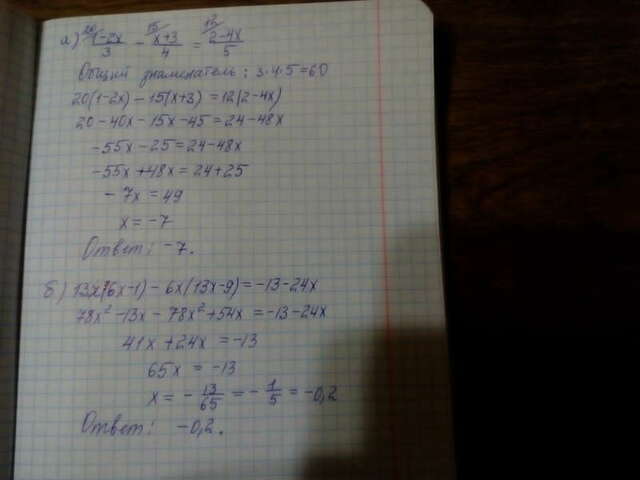 а) ²⁰⁄(1-2x)/3 - ¹⁵⁄(x+3)/4 = ¹²⁄(2-4x)/5
Общий знаменатель: 3·4·5=60
20(1-2x) - 15(x+3) = 12(2-4x)
20-40x-15x-45=24-48x
-55x-25=24-48x
-55x+48x=24+25
-7x=49
x=-7
Ответ: -7.
б) 13x(6x-1) - 6x(13x-9) = -13-24x
78x²-13x-78x²+54x=-13-24x
41x+24x=-13
65x=-13
x=-13/65=-1/5=-0,2
Ответ: -0,2.